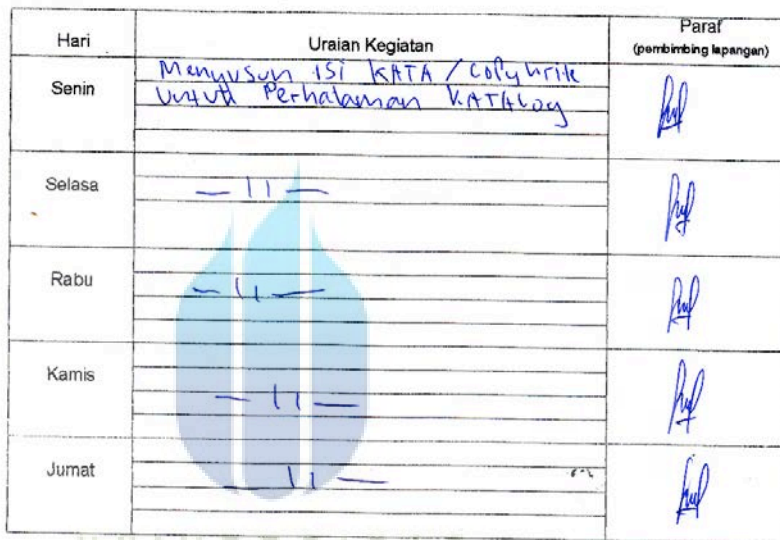 Hari Uraian Kegiatan Paraf
(pembimbing lapangan)
Senin Menyusun isi KATA / Copywrite
untuk Perhalaman KATALOG
Selasa — 11 —
Rabu — 11 —
Kamis — 11 —
Jumat — 11 —